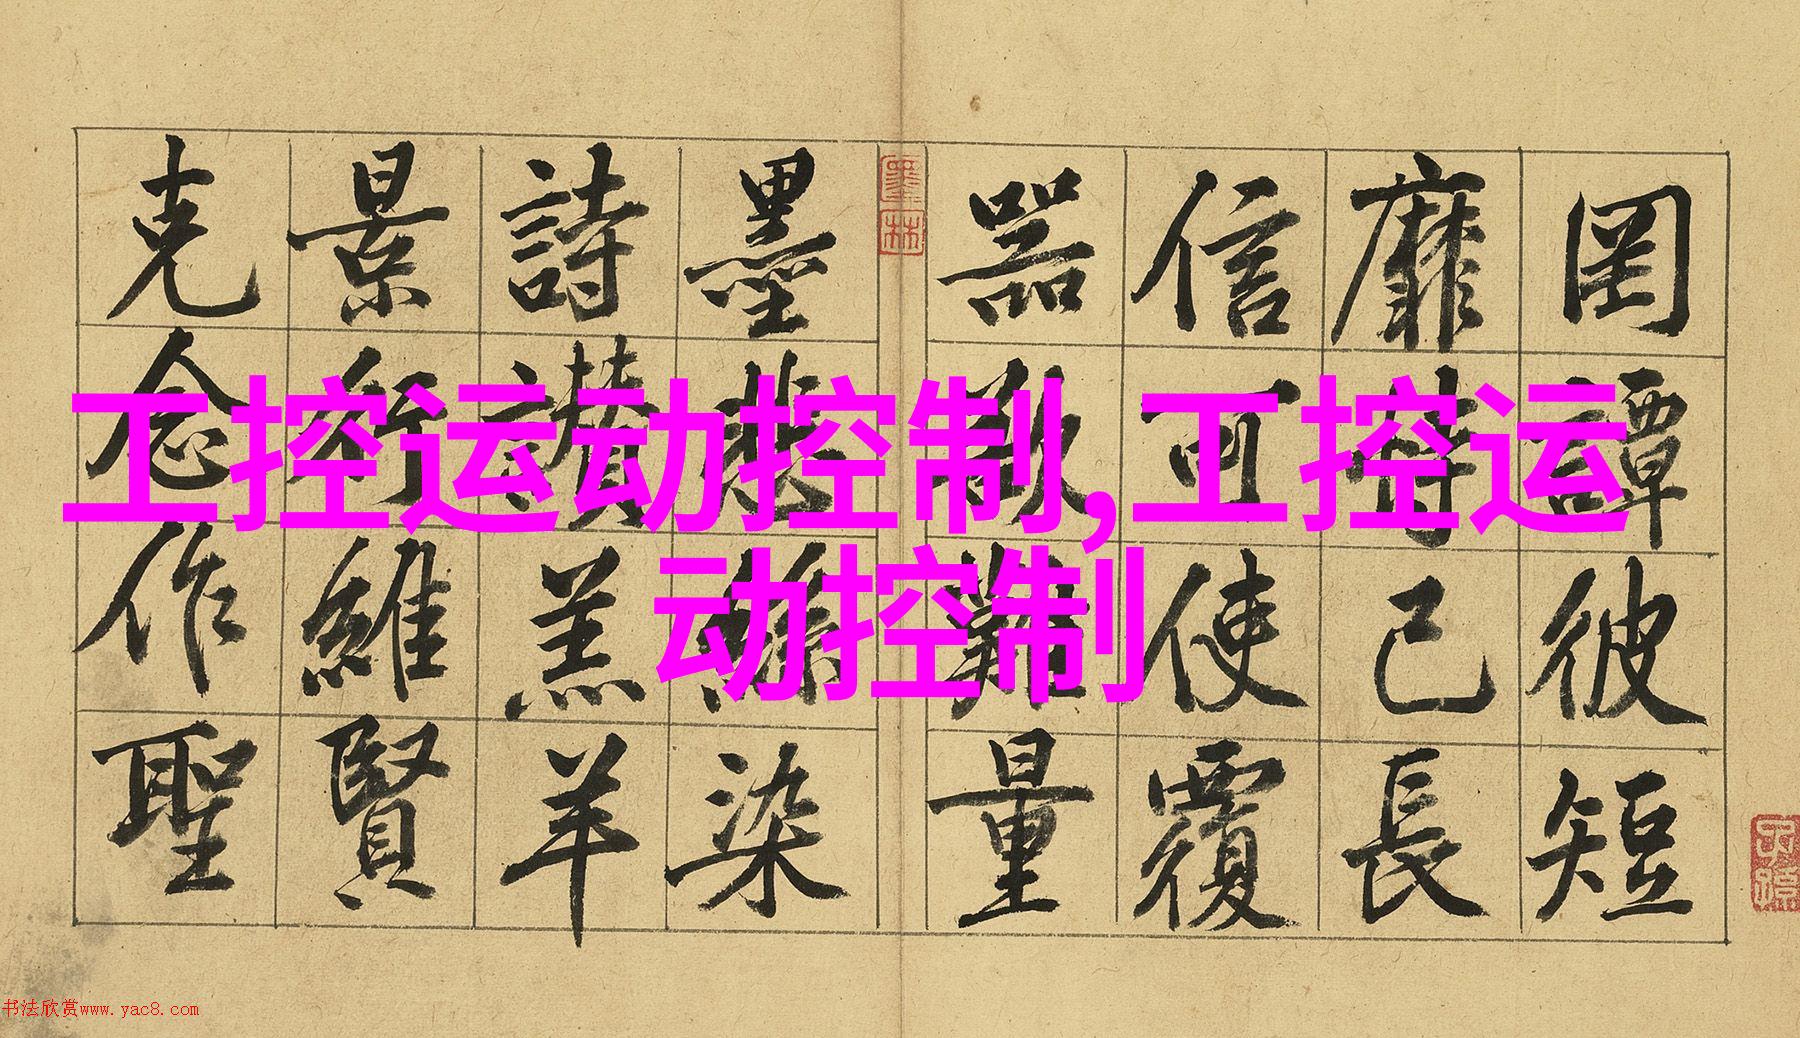 工控运动控制,工控运
动控制
罔談彼短
靡恃己長
信可使覆
器欲難量
墨林
墨悲絲染
詩讚羔羊
景行維賢
克念作聖
书法欣赏www.yac8.com